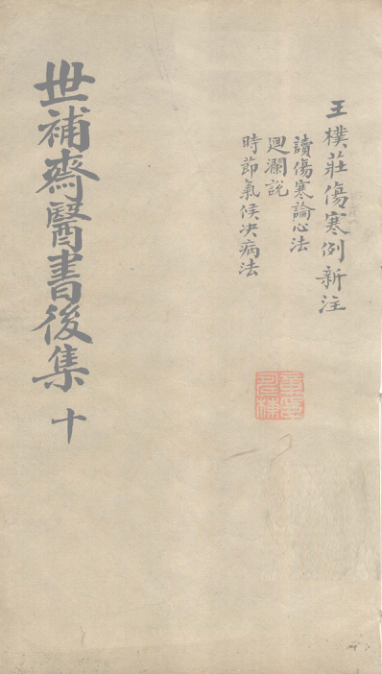 王樸莊傷寒例新注
讀傷寒論心法
廻瀾說
時節氣候决病法
世補齋醫書後集 十